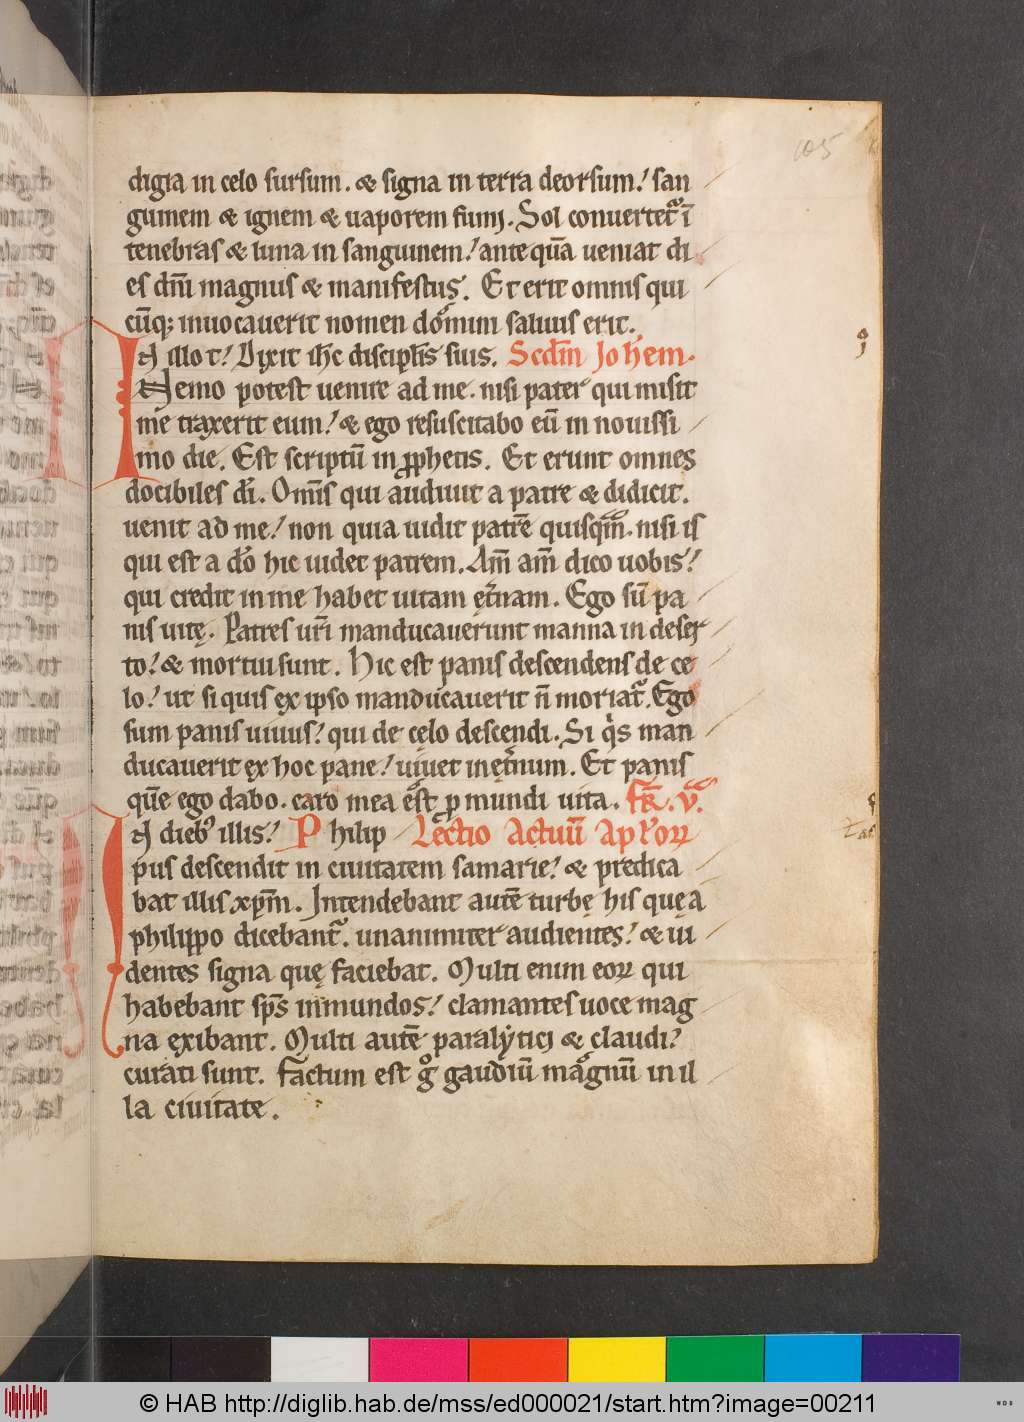 105
digia in celo sursum. & signa in terra deorsum! san
guinem & ignem & uaporem fumj. Sol conuertet᷑ ī
tenebras & luna in sanguinem! ante quā ueniat di
es dn̄i magnus & manifestus. Et erit omnis qui
cūq; inuocauerit nomen domini saluus erit.
IN illo t! Dixit ih̄c discipl̄is suis. Scd̄m Joh̄em.
Nemo potest uenire ad me. nisi pater qui misit
me traxerit eum! & ego resuscitabo eū in nouissi
mo die. Est scriptū in ꝓphetis. Et erunt omnes
docibiles dī. Om̄is qui audiuit a patre & didicit.
uenit ad me! non quia uidit patrē quisqm̄. nisi is
qui est a dō hic uidet patrem. Am̄ am̄ dico uobis!
qui credit in me habet uitam et̄nam. Ego sū pa
nis uitę. Patres ur̄i manducauerunt manna in deser
to! & mortui sunt. Hic est panis descendens de ce
lo! ut si quis ex ipso manducauerit n̄ moriat᷑. Ego
sum panis uiuus! qui de cęlo descendi. Si qͥs man
ducauerit ex hoc pane! uiuet in et̄num. Et panis
quē ego dabo. caro mea est ꝓ mundi uita. Fr̄. v.
IN dieb᷒ illis! Philip Lectio Actuū Apl'oꝝ
pus descendit in ciuitatem samarie! & predica
bat illis xp̄m. Intendebant autē turbę his quę a
philippo dicebant᷑. unanimiter audientes! & ui
dentes signa quę faciebat. Multi enim eoꝝ qui
habebant sp̄s inmundos! clamantes uoce mag
na exibant. Multi autē paralytici & claudi!
curati sunt. Factum est gͦ gaudiū magnū in il
la ciuitate.
© HAB http://diglib.hab.de/mss/ed000021/start.htm?image=00211